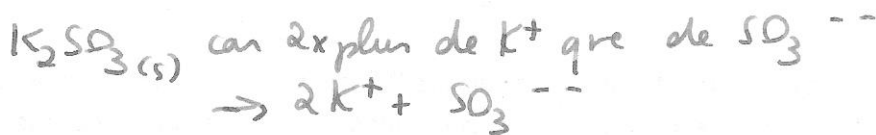 K₂SO₃(s) car 2x plus de K⁺ que de SO₃⁻⁻
→ 2K⁺ + SO₃⁻⁻